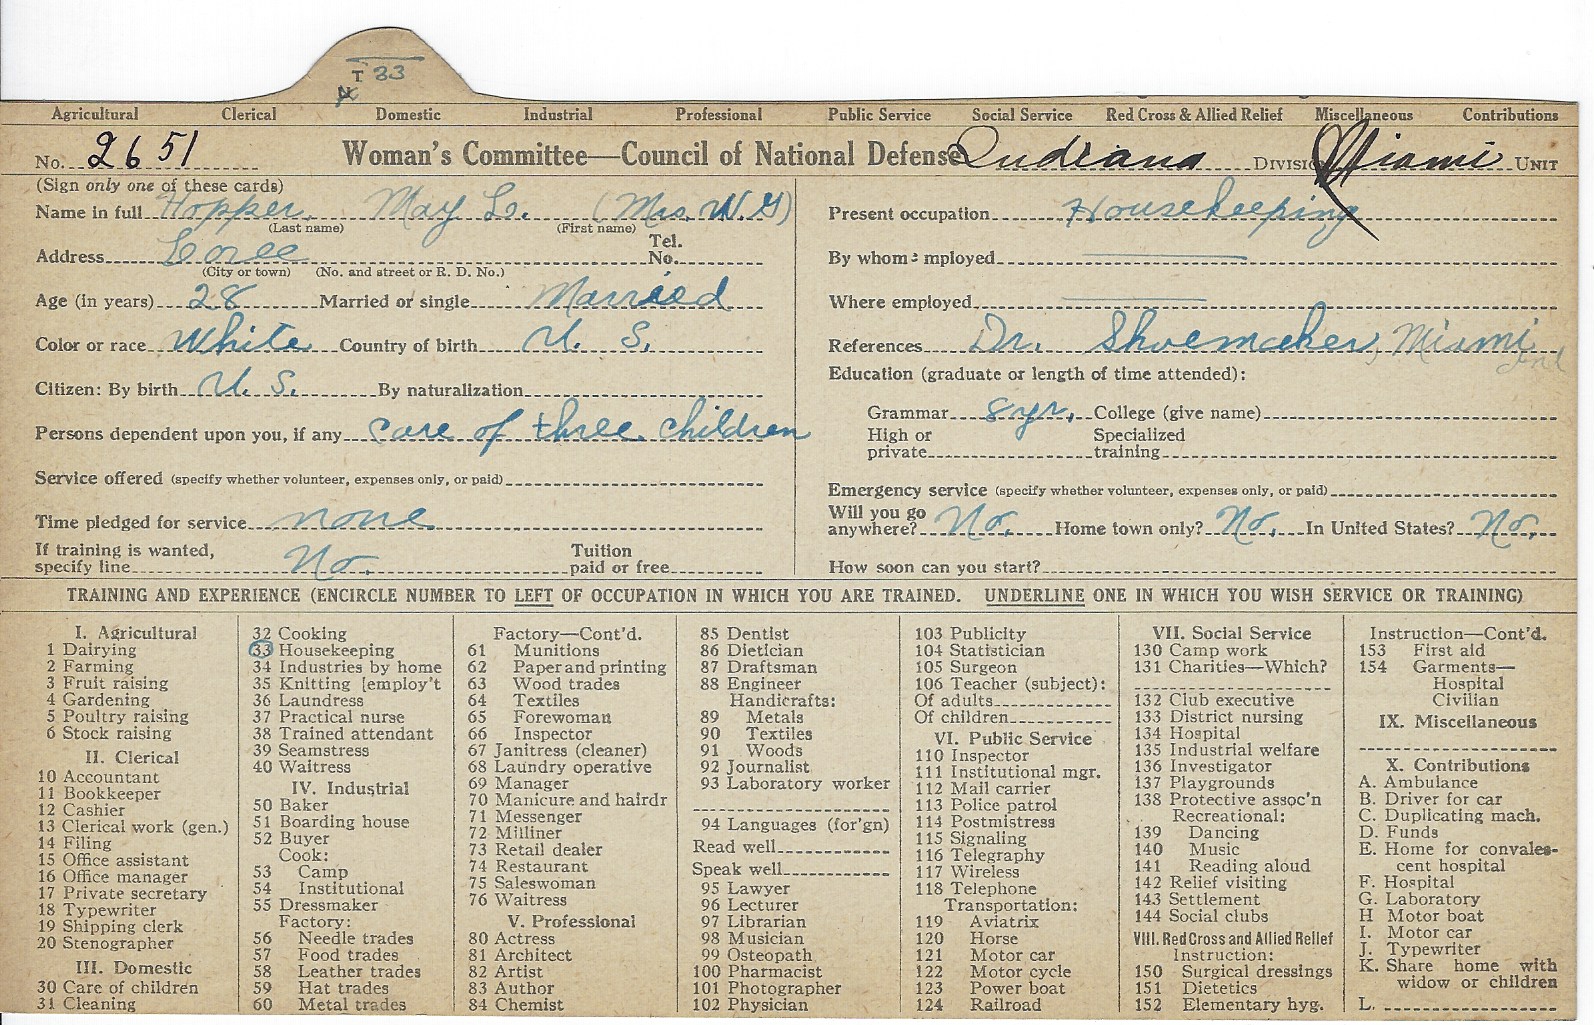 T 33
Agricultural Clerical Domestic Industrial Professional Public Service Social Service Red Cross & Allied Relief Miscellaneous Contributions
No. 2651 Woman's Committee—Council of National Defense Indiana Division Miami Unit
(Sign only one of these cards)
Name in full Hopper, May L. (Mrs. W. G)
(Last name) (First name)
Address Loree Tel. No.
(City or town) (No. and street or R. D. No.)
Age (in years) 28 Married or single Married
Color or race White Country of birth U. S.
Citizen: By birth U. S. By naturalization
Persons dependent upon you, if any care of three children
Service offered (specify whether volunteer, expenses only, or paid)
Time pledged for service none
If training is wanted, Tuition
specify line No. paid or free
Present occupation Housekeeping
By whom employed
Where employed
References Dr. Shoemaker, Miami Ind
Education (graduate or length of time attended):
Grammar 8 yr. College (give name)
High or Specialized
private training
Emergency service (specify whether volunteer, expenses only, or paid)
Will you go
anywhere? No. Home town only? No. In United States? No.
How soon can you start?
TRAINING AND EXPERIENCE (ENCIRCLE NUMBER TO LEFT OF OCCUPATION IN WHICH YOU ARE TRAINED. UNDERLINE ONE IN WHICH YOU WISH SERVICE OR TRAINING)
I. Agricultural
1 Dairying
2 Farming
3 Fruit raising
4 Gardening
5 Poultry raising
6 Stock raising
II. Clerical
10 Accountant
11 Bookkeeper
12 Cashier
13 Clerical work (gen.)
14 Filing
15 Office assistant
16 Office manager
17 Private secretary
18 Typewriter
19 Shipping clerk
20 Stenographer
III. Domestic
30 Care of children
31 Cleaning
32 Cooking
33 Housekeeping
34 Industries by home
35 Knitting [employ't
36 Laundress
37 Practical nurse
38 Trained attendant
39 Seamstress
40 Waitress
IV. Industrial
50 Baker
51 Boarding house
52 Buyer
Cook:
53 Camp
54 Institutional
55 Dressmaker
Factory:
56 Needle trades
57 Food trades
58 Leather trades
59 Hat trades
60 Metal trades
Factory—Cont'd.
61 Munitions
62 Paper and printing
63 Wood trades
64 Textiles
65 Forewoman
66 Inspector
67 Janitress (cleaner)
68 Laundry operative
69 Manager
70 Manicure and hairdr
71 Messenger
72 Milliner
73 Retail dealer
74 Restaurant
75 Saleswoman
76 Waitress
V. Professional
80 Actress
81 Architect
82 Artist
83 Author
84 Chemist
85 Dentist
86 Dietician
87 Draftsman
88 Engineer
Handicrafts:
89 Metals
90 Textiles
91 Woods
92 Journalist
93 Laboratory worker
94 Languages (for'gn)
Read well
Speak well
95 Lawyer
96 Lecturer
97 Librarian
98 Musician
99 Osteopath
100 Pharmacist
101 Photographer
102 Physician
103 Publicity
104 Statistician
105 Surgeon
106 Teacher (subject):
Of adults
Of children
VI. Public Service
110 Inspector
111 Institutional mgr.
112 Mail carrier
113 Police patrol
114 Postmistress
115 Signaling
116 Telegraphy
117 Wireless
118 Telephone
Transportation:
119 Aviatrix
120 Horse
121 Motor car
122 Motor cycle
123 Power boat
124 Railroad
VII. Social Service
130 Camp work
131 Charities—Which?
132 Club executive
133 District nursing
134 Hospital
135 Industrial welfare
136 Investigator
137 Playgrounds
138 Protective assoc'n
Recreational:
139 Dancing
140 Music
141 Reading aloud
142 Relief visiting
143 Settlement
144 Social clubs
VIII. Red Cross and Allied Relief
Instruction:
150 Surgical dressings
151 Dietetics
152 Elementary hyg.
Instruction—Cont'd.
153 First aid
154 Garments—
Hospital
Civilian
IX. Miscellaneous
X. Contributions
A. Ambulance
B. Driver for car
C. Duplicating mach.
D. Funds
E. Home for convales-
cent hospital
F. Hospital
G. Laboratory
H Motor boat
I. Motor car
J. Typewriter
K. Share home with
widow or children
L.